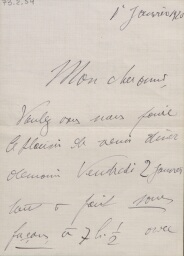 75.2.54
1er Janvier 1920
Mon cher ami,
Voulez vous nous faire
le plaisir de venir dîner
demain Vendredi 2 Janvier
tout à fait sans
façons à 7 h. ½ avec